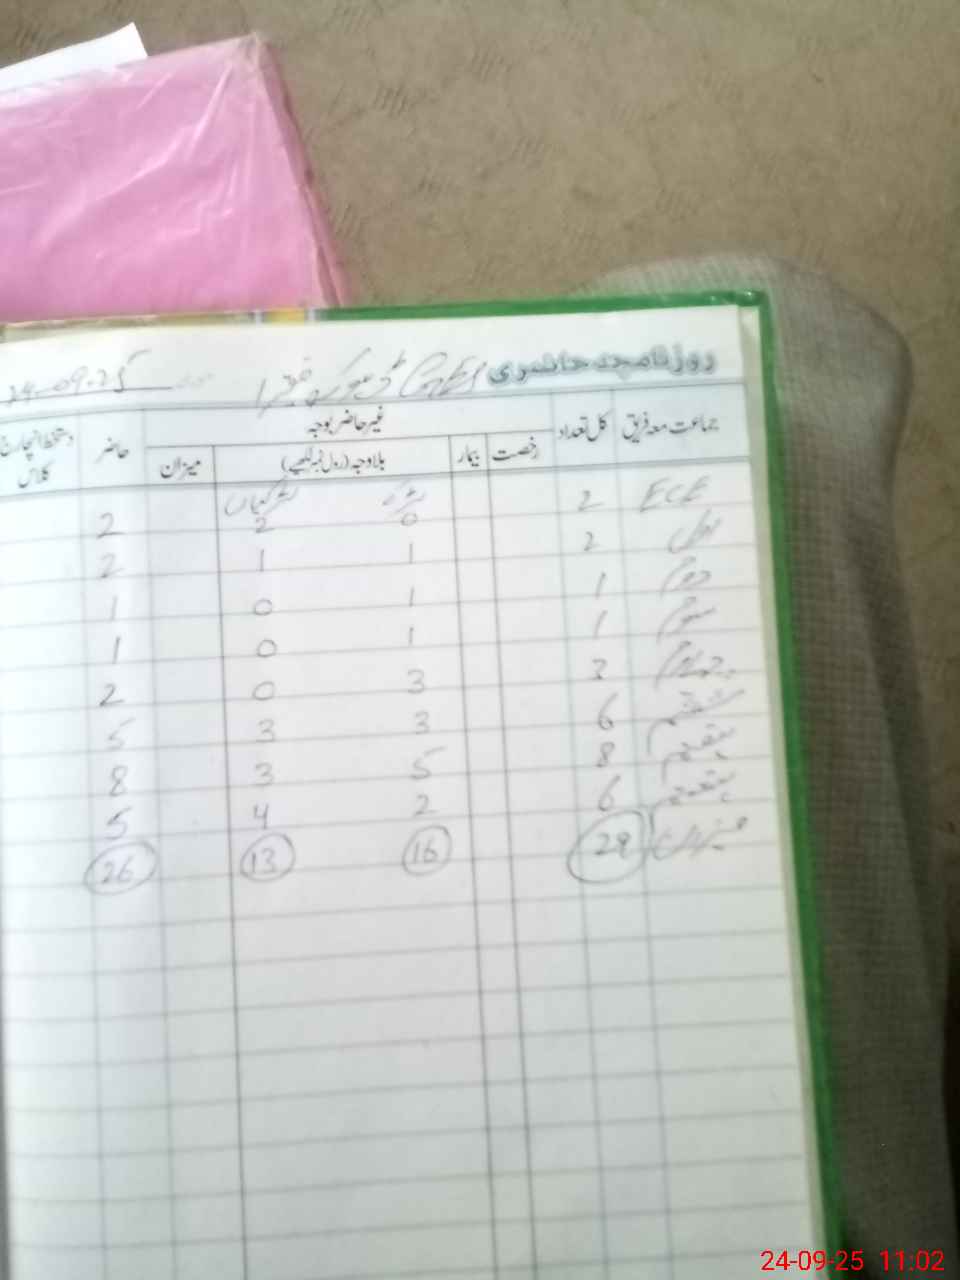 روزنامچہ حاضری
24-09-25
جماعت معہ فریق کل تعداد غیر حاضر بوجہ حاضر دستخط انچارج کلاس
رخصت بیمار بلاوجہ (رول نمبر لکھیے) میزان
لڑکے لڑکیاں
ECE 2 0 2 2
اول 2 1 1 2
دوم 1 1 0 1
سوم 1 1 0 1
چہارم 3 3 0 2
ششم 6 3 3 5
ہفتم 8 5 3 8
ہشتم 6 2 4 5
میزان 29 16 13 26
24-09-25 11:02